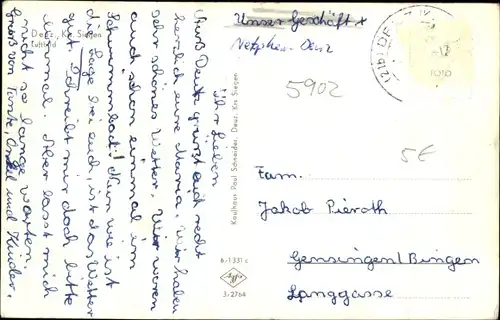 Deuz, Kr. Siegen
Luftbild
Ihr Lieben
Aus Deuz grüßt euch recht
herzlich eure Maria. Wir haben
sehr schönes Wetter. Wir waren
auch schon einmal im
Schwimmbad! Nun wie ist
die Lage bei euch, ist das Wetter
gut. Schreibt mir doch bitte
einmal. Aber lasst mich
nicht so lange warten.
Gruß von Tante, Onkel und Kinder.
Kaufhaus Paul Schneider, Deuz, Kr. Siegen
Unser Geschäft x
Netphen-Deuz
5902
5€
(21b) DE
Fam.
Jakob Pieroth
Gensingen/Bingen
Langgasse
6/1331 c
Agfa
3/2764